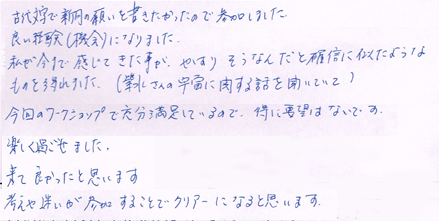 古代文字で新月の願いを書きたかったので参加しました。
良い経験(機会)になりました。
私が今まで感じてきた事が、やはり そうなんだと確信に似たような
ものを得れました。(さんの宇宙に関する話を聞いていて)
今回のワークショップで充分満足しているので、特に要望はないです。
楽しく過ごせました。
来て良かったと思います
考えや迷いが参加することでクリアーになると思います。